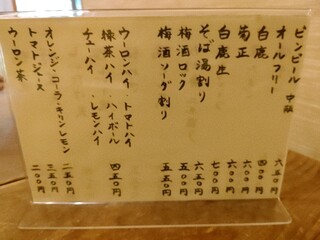 ビンビール 中瓶 六五〇円
オールフリー 四〇〇円
白鹿 六〇〇円
菊正 六〇〇円
白鹿生 七〇〇円
そば湯割り 六五〇円
梅酒ロック 五〇〇円
梅酒ソーダ割り 五五〇円
ウーロンハイ・トマトハイ
緑茶ハイ・ハイボール 四五〇円
チューハイ・レモンハイ
オレンジ・コーラ・キリンレモン 二五〇円
トマトジュース 三五〇円
ウーロン茶 二〇〇円